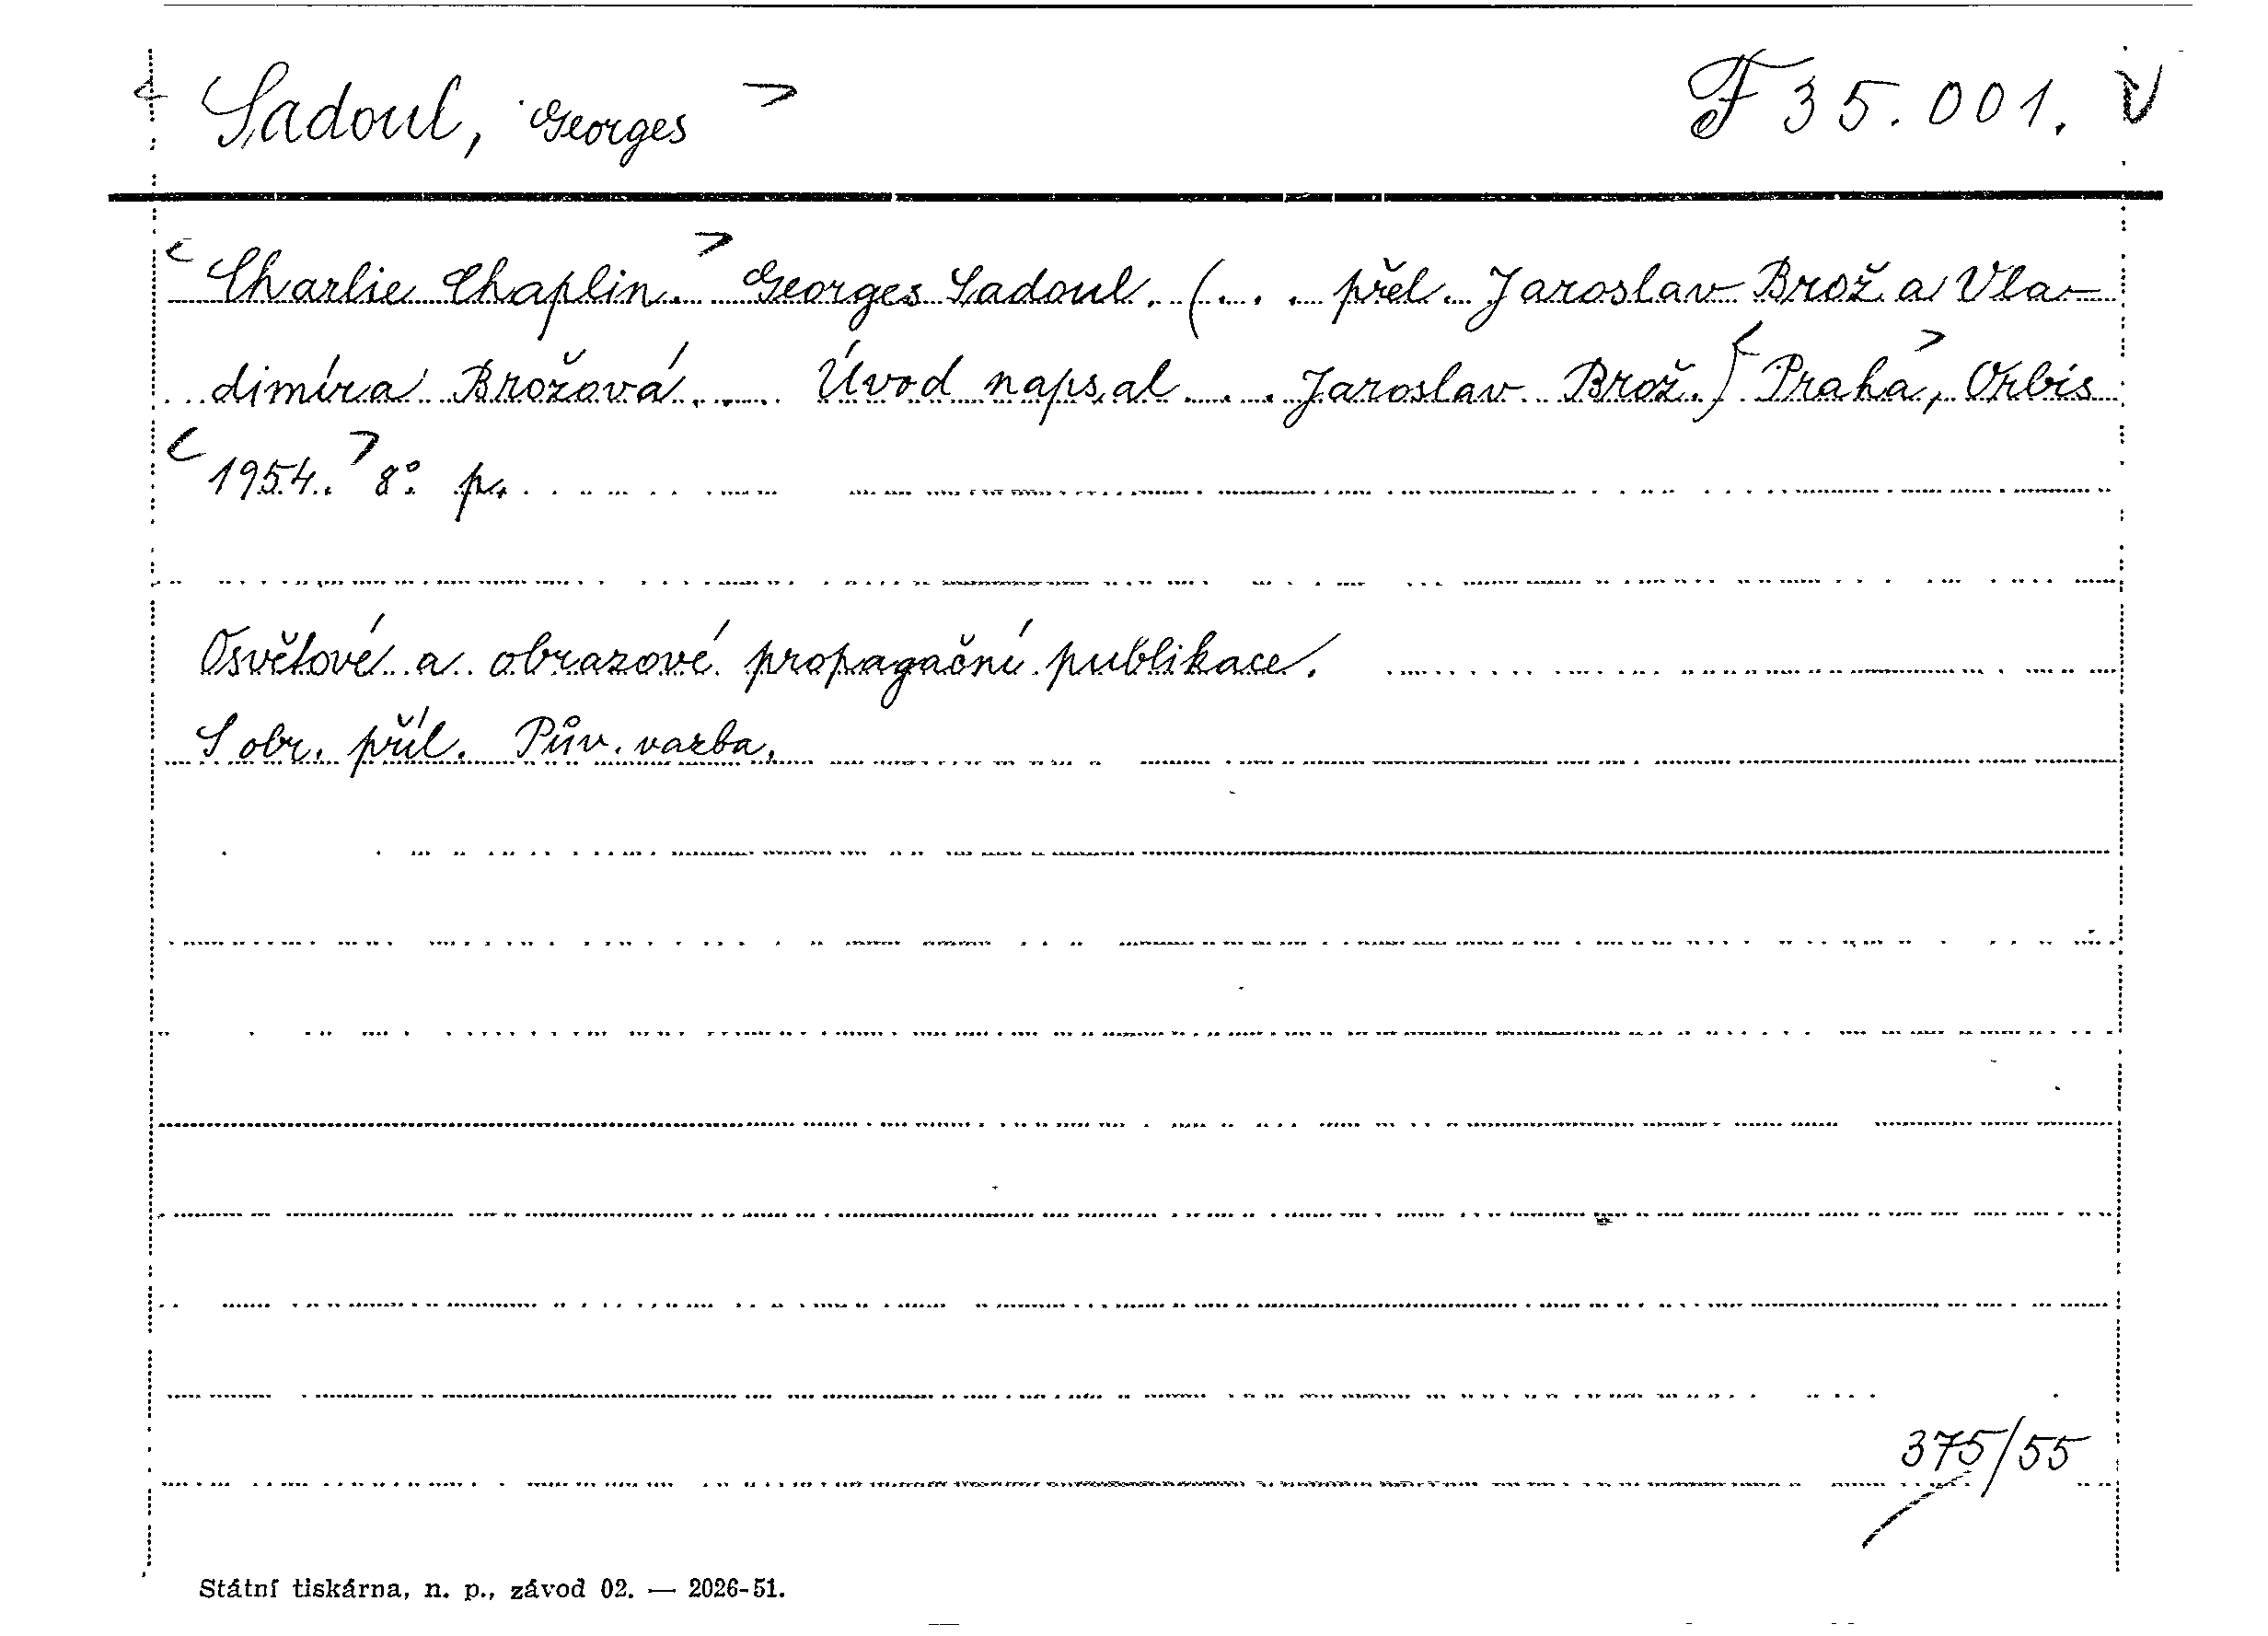 < Sadoul, Georges > F 35.001. V
< Charlie Chaplin. > Georges Sadoul. (... přel. Jaroslav Brož a Vla-
dimíra Brožová... Úvod napsal... Jaroslav Brož.) < Praha >, Orbis
< 1954. > 8° p.
Osvětové a obrazové propagační publikace.
S obr. příl. Pův. vazba.
375/55
Státní tiskárna, n. p., závod 02. — 2026-51.